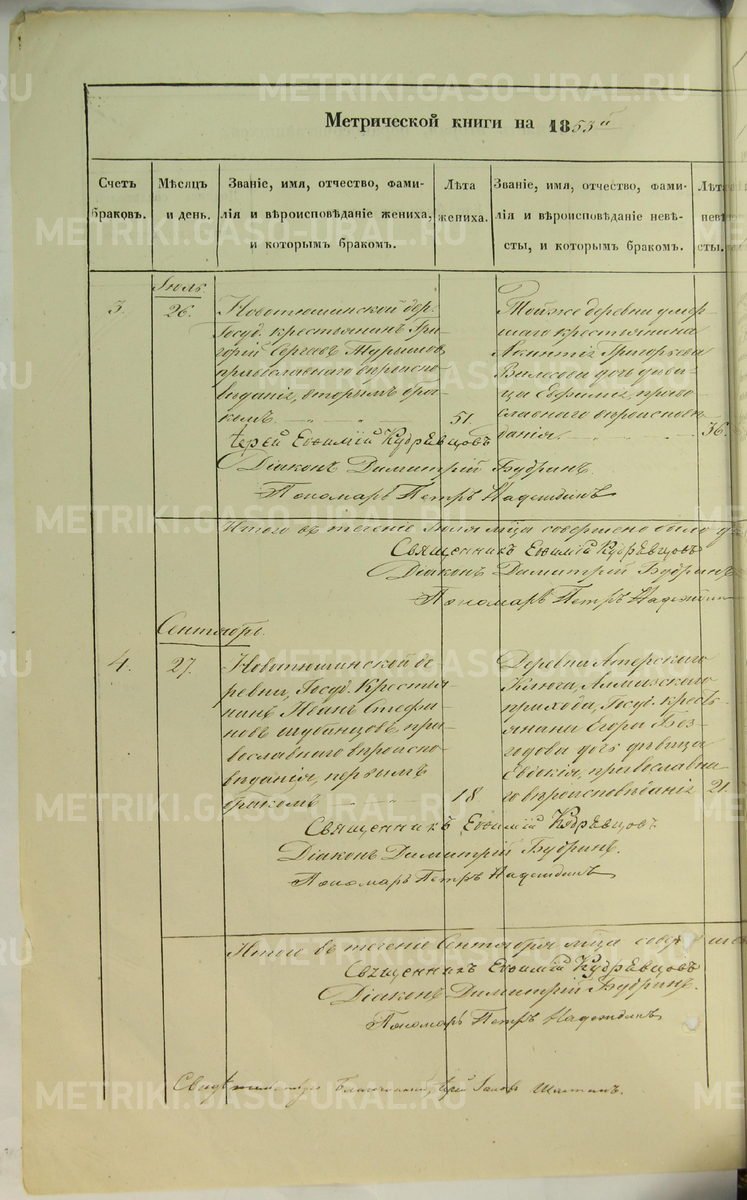 Метрической книги на 1853й
Счетъ браковъ.
Мѣсяцъ и день.
Званіе, имя, отчество, фами-
лія и вѣроисповѣданіе жениха,
и которымъ бракомъ.
Лѣта
жениха.
Званіе, имя, отчество, фами-
лія и вѣроисповѣданіе невѣ-
сты, и которымъ бракомъ.
Лѣта
невѣ
сты.
Іюль
3.
26.
Новотюшинской дер.
Госуд. крестьянинъ Гри-
горій Сергѣевъ
православнаго вѣроиспо-
вѣданія, вторымъ бра-
комъ
51.
Тойже деревни умер-
шаго крестьянина
Григорьева
дочь дѣви-
ца Евфимія, право-
славнаго вѣроисповѣ-
данія.
36.
Іерей Евѳимій Кудрѣвцовъ
Діаконъ Димитрій Бубринъ.
Пономарь Петръ Надеждинъ
Итого въ теченіе Іюля мѣца совершено было
Священникъ Евѳимій Кудрѣвцовъ
Діаконъ Димитрій Бубринъ
Пономарь Петръ Надеждинъ
Сентябрь.
4.
27.
Новотюшинской де
ревни, Госуд. Крестья-
нинъ Иванъ Стефа-
новъ пра-
вославнаго вѣроиспо-
вѣданія, первымъ
бракомъ
18
Деревни Атерскаго
Ключа,
прихода, Госуд. кресть-
янина Егора Без-
годова дочь дѣвица
Евдокія, православна-
го вѣроисповѣданія
21.
Священникъ Евѳимій Кудрѣвцовъ
Діаконъ Димитрій Бубринъ.
Пономарь Петръ Надеждинъ
Итого въ теченіе Сентября мѣца
Священникъ Евѳимій Кудрѣвцовъ
Діаконъ Димитрій Бубринъ.
Пономарь Петръ Надеждинъ
METRIKI.GASO-URAL.RU